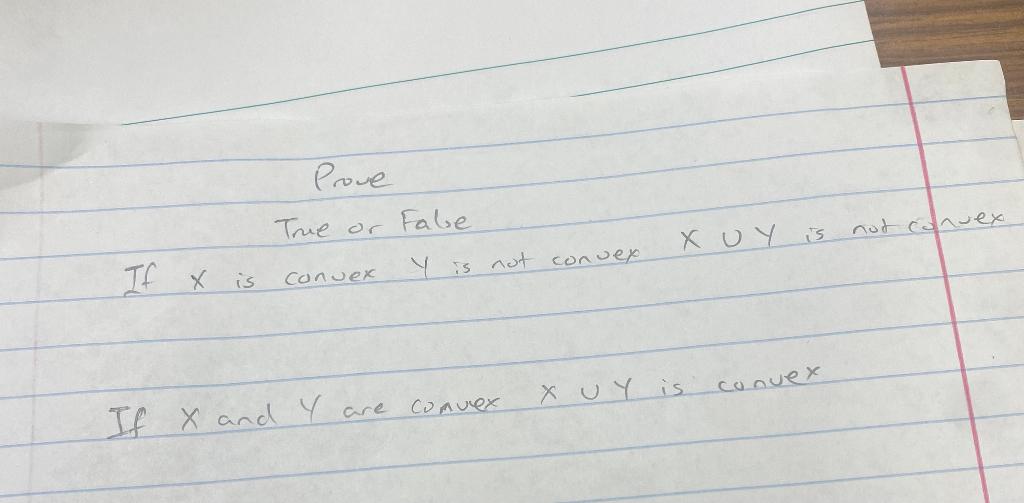 Prove
True or False
If X is convex Y is not convex X ∪ Y is not convex
If X and Y are convex X ∪ Y is convex